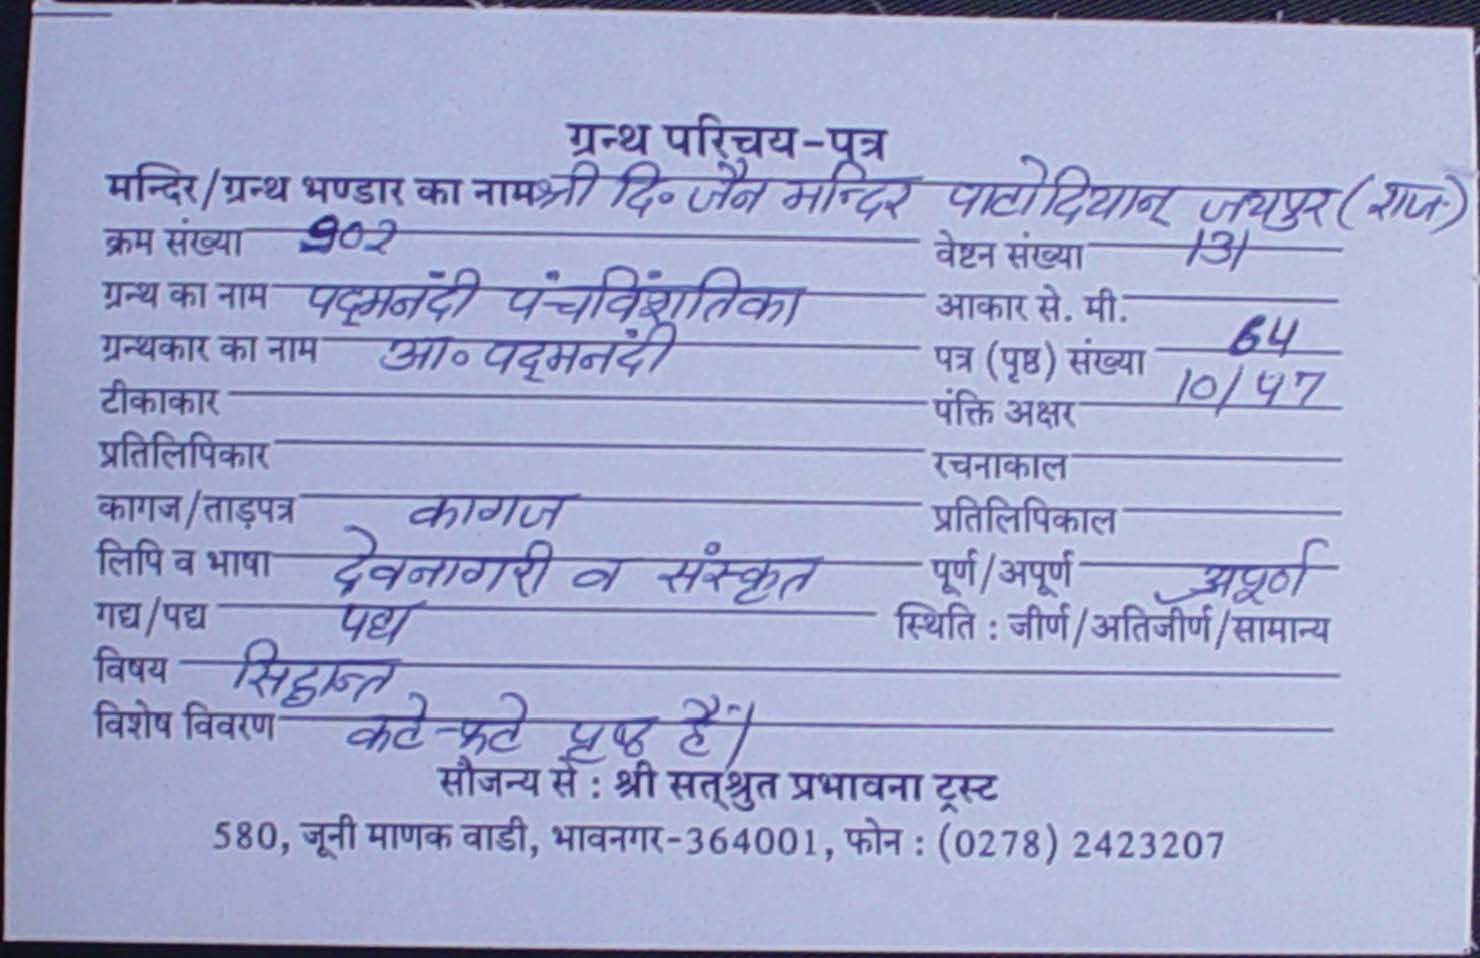 ग्रन्थ परिचय-पत्र
मन्दिर/ग्रन्थ भण्डार का नाम श्री दि॰ जैन मन्दिर पाटोदियान् जयपुर (राज.)
क्रम संख्या 902 वेष्टन संख्या 131
ग्रन्थ का नाम पद्मनंदी पंचविंशतिका आकार से. मी.
ग्रन्थकार का नाम आ॰ पद्मनंदी पत्र (पृष्ठ) संख्या 64
टीकाकार पंक्ति अक्षर 10/47
प्रतिलिपिकार रचनाकाल
कागज/ताड़पत्र कागज प्रतिलिपिकाल
लिपि व भाषा देवनागरी व संस्कृत पूर्ण/अपूर्ण अपूर्ण
गद्य/पद्य पद्य स्थिति : जीर्ण/अतिजीर्ण/सामान्य
विषय सिद्धान्त
विशेष विवरण कटे-फटे पृष्ठ हैं।
सौजन्य से : श्री सत्श्रुत प्रभावना ट्रस्ट
580, जूनी माणक वाडी, भावनगर-364001, फोन : (0278) 2423207